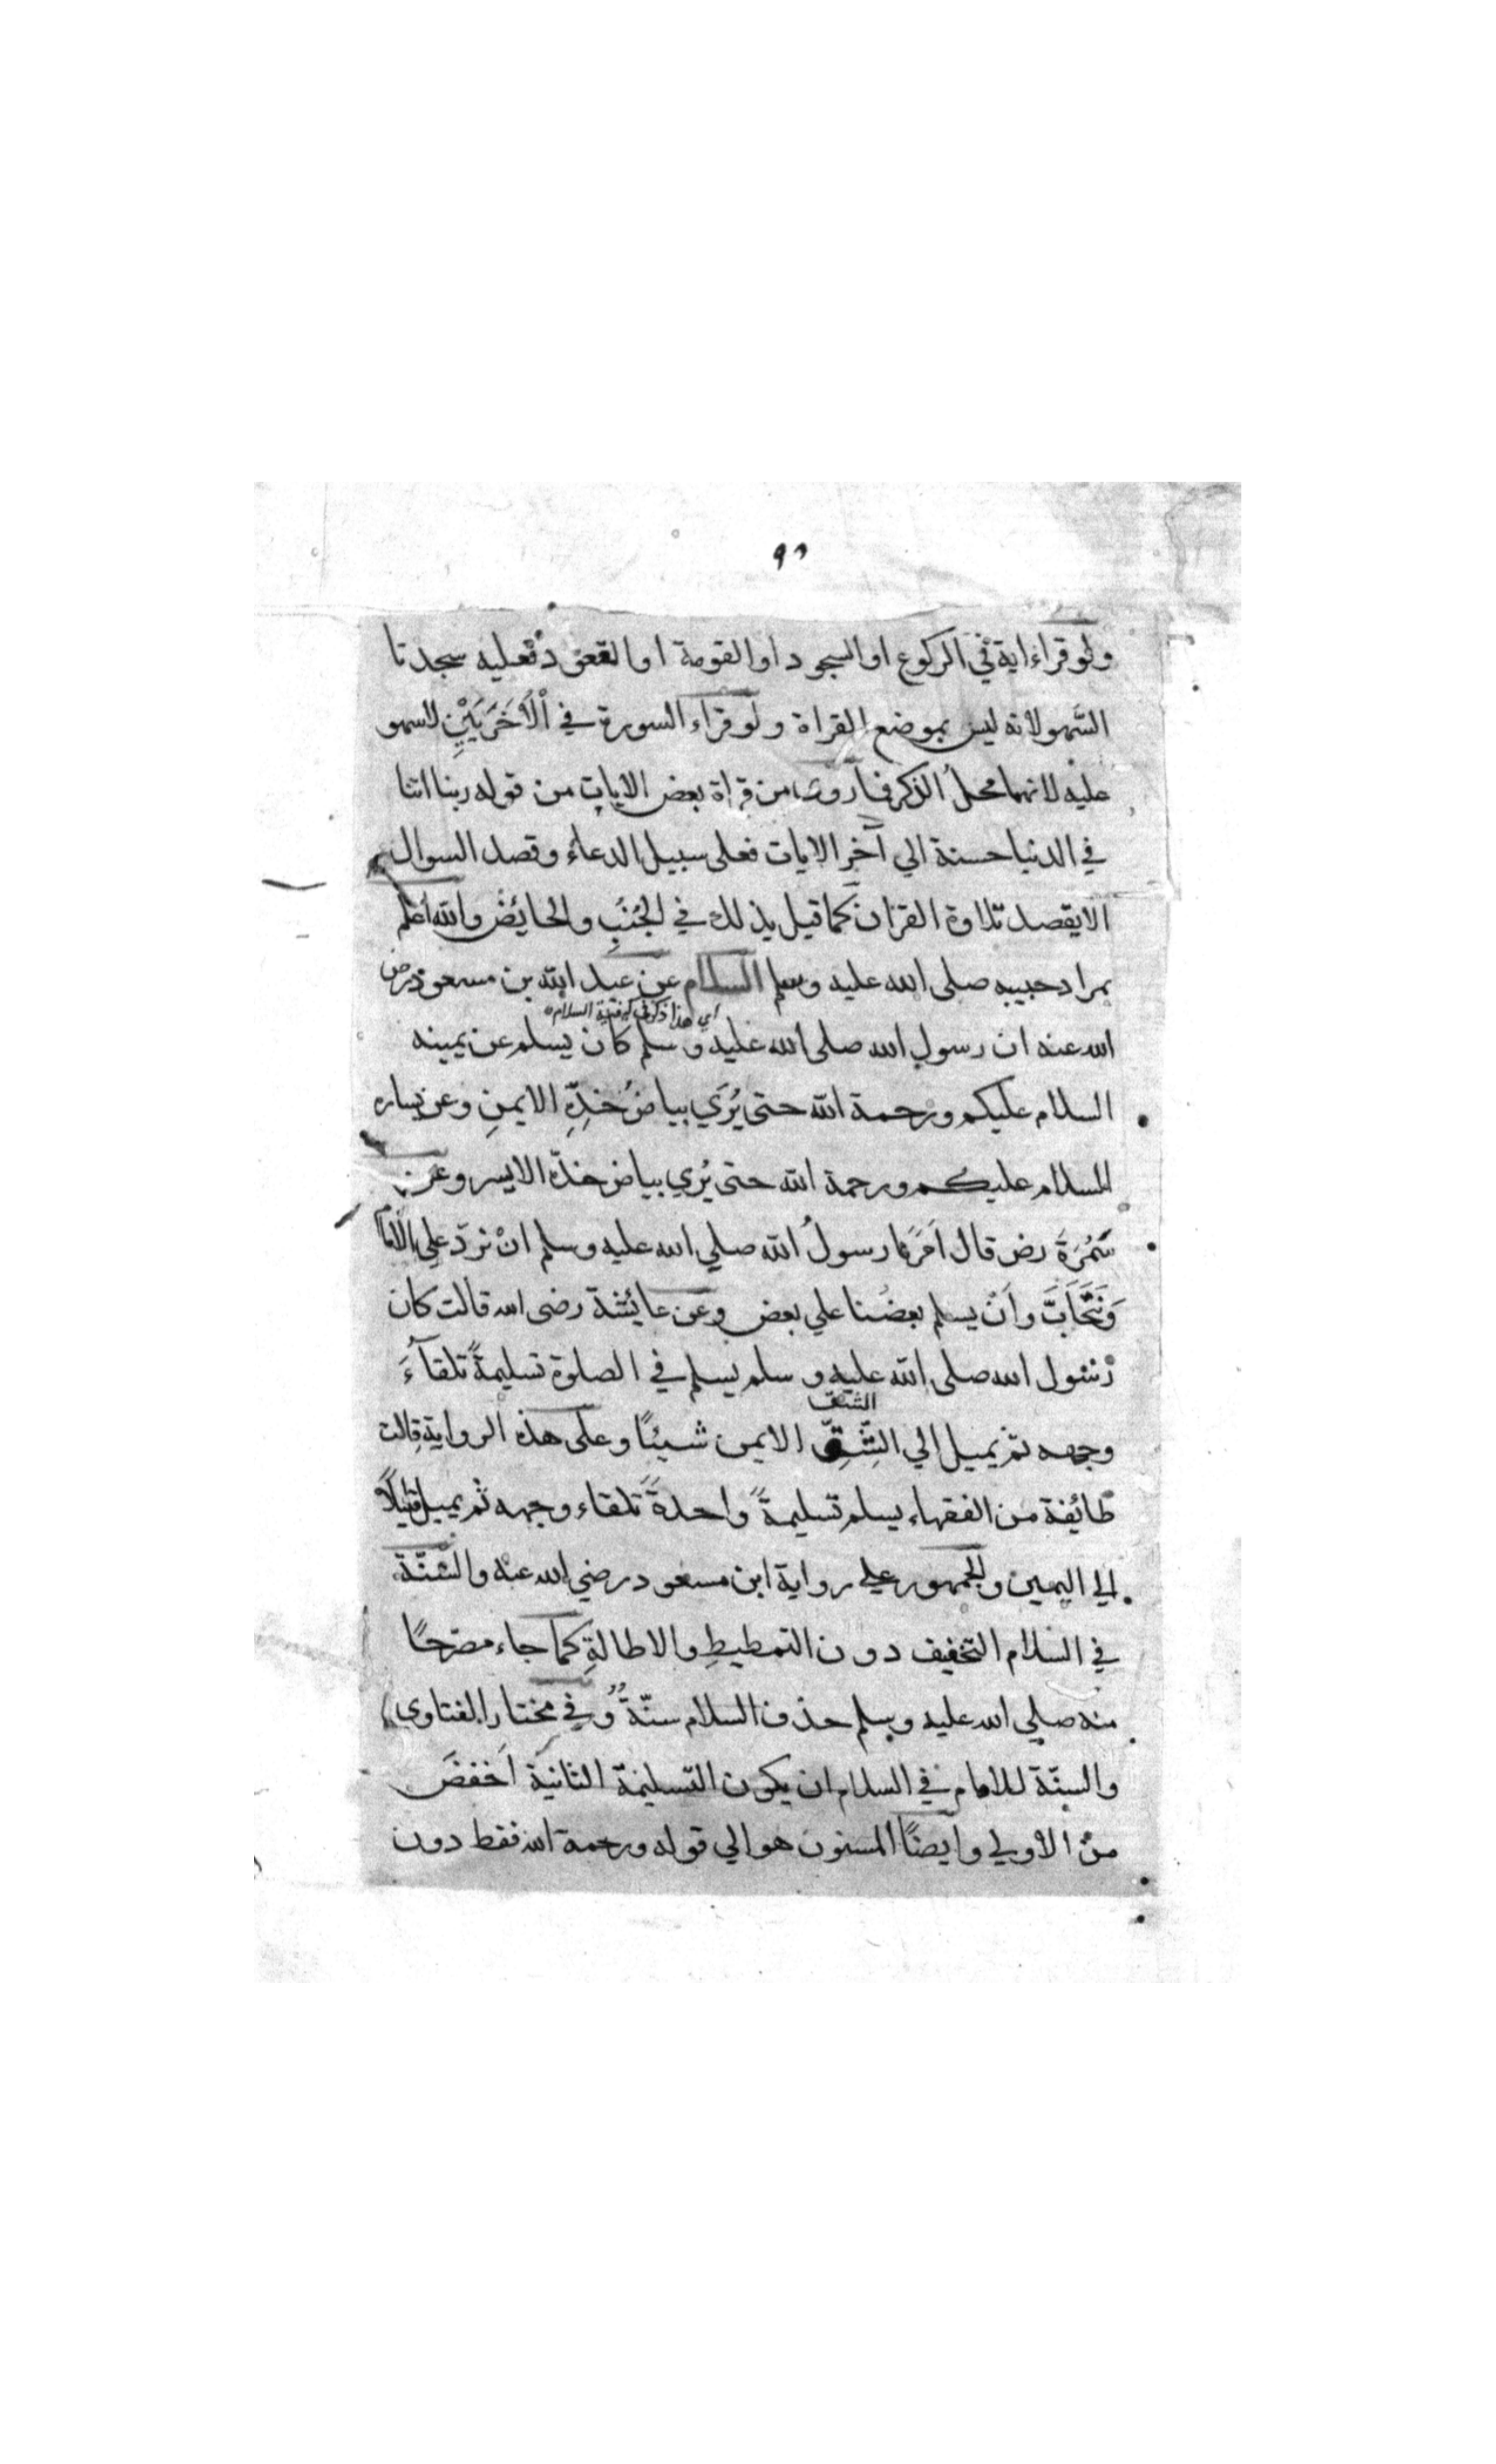 ٩٦
ولو قراء اية في الركوع او السجود او القومة او القعود فعليه سجدتا
السَّهو لانه ليس بموضع القراة ولو قراء السورة في الْاُخْرَيَيْنِ لاسهو
عليه لانهما محلُ الذكر فما روى من قراة بعض الايات من قوله ربنا اتنا
في الدنيا حسنة الي آخر الايات فعلى سبيل الدعاء وقصد السوال
الا بقصد تلاوة القران كما قيل بذلك في الجُنُبِ والحائض والله اعلم
بمراد حبيبه صلى الله عليه وسلم السلام عن عبد الله بن مسعود رضى
اي هذا ذكر في كيفية السلام
الله عنه ان رسول الله صلى الله عليه وسلم كان يسلم عن يمينه
السلام عليكم ورحمة الله حتى يُرَي بياضُ خدِّهِ الايمنِ وعن يساره
السلام عليكم ورحمة الله حتى يُرَي بياض خدّه الايسر وعن
سَمُرَةَ رض قال اَمَرَنا رسولُ الله صلي الله عليه وسلم انْ نردّ علي الامام
وَنَتَحَابَّ وَاَنْ يسلم بعضُنا علي بعض وعن عايشة رضى الله قالت كان
رسول الله صلى الله عليه وسلم يسلم في الصلوة تسليمةً تلقآءَ
الشق
وجهه ثم يميل الي الشِّقِّ الايمن شيئًا وعلى هذه الرواية قالت
طائفة من الفقهاء يسلم تسليمةً واحدةً تلقاء وجهه ثم يميل قليلًا
الي اليمين والجمهور علي رواية ابن مسعود رضي الله عنه والسُّنّة
في السّلام التخفيف دون التمطيطِ والاطالةِ كما جاء مصرّحًا
منه صلي الله عليه وسلم حذف السلام سنّةٌ وفي مختار الفتاوى
والسنّة للامام في السلام ان يكون التسليمة الثانية اَخفضَ
منْ الاولي وايضًا المسنون هو الي قوله ورحمة الله فقط دون